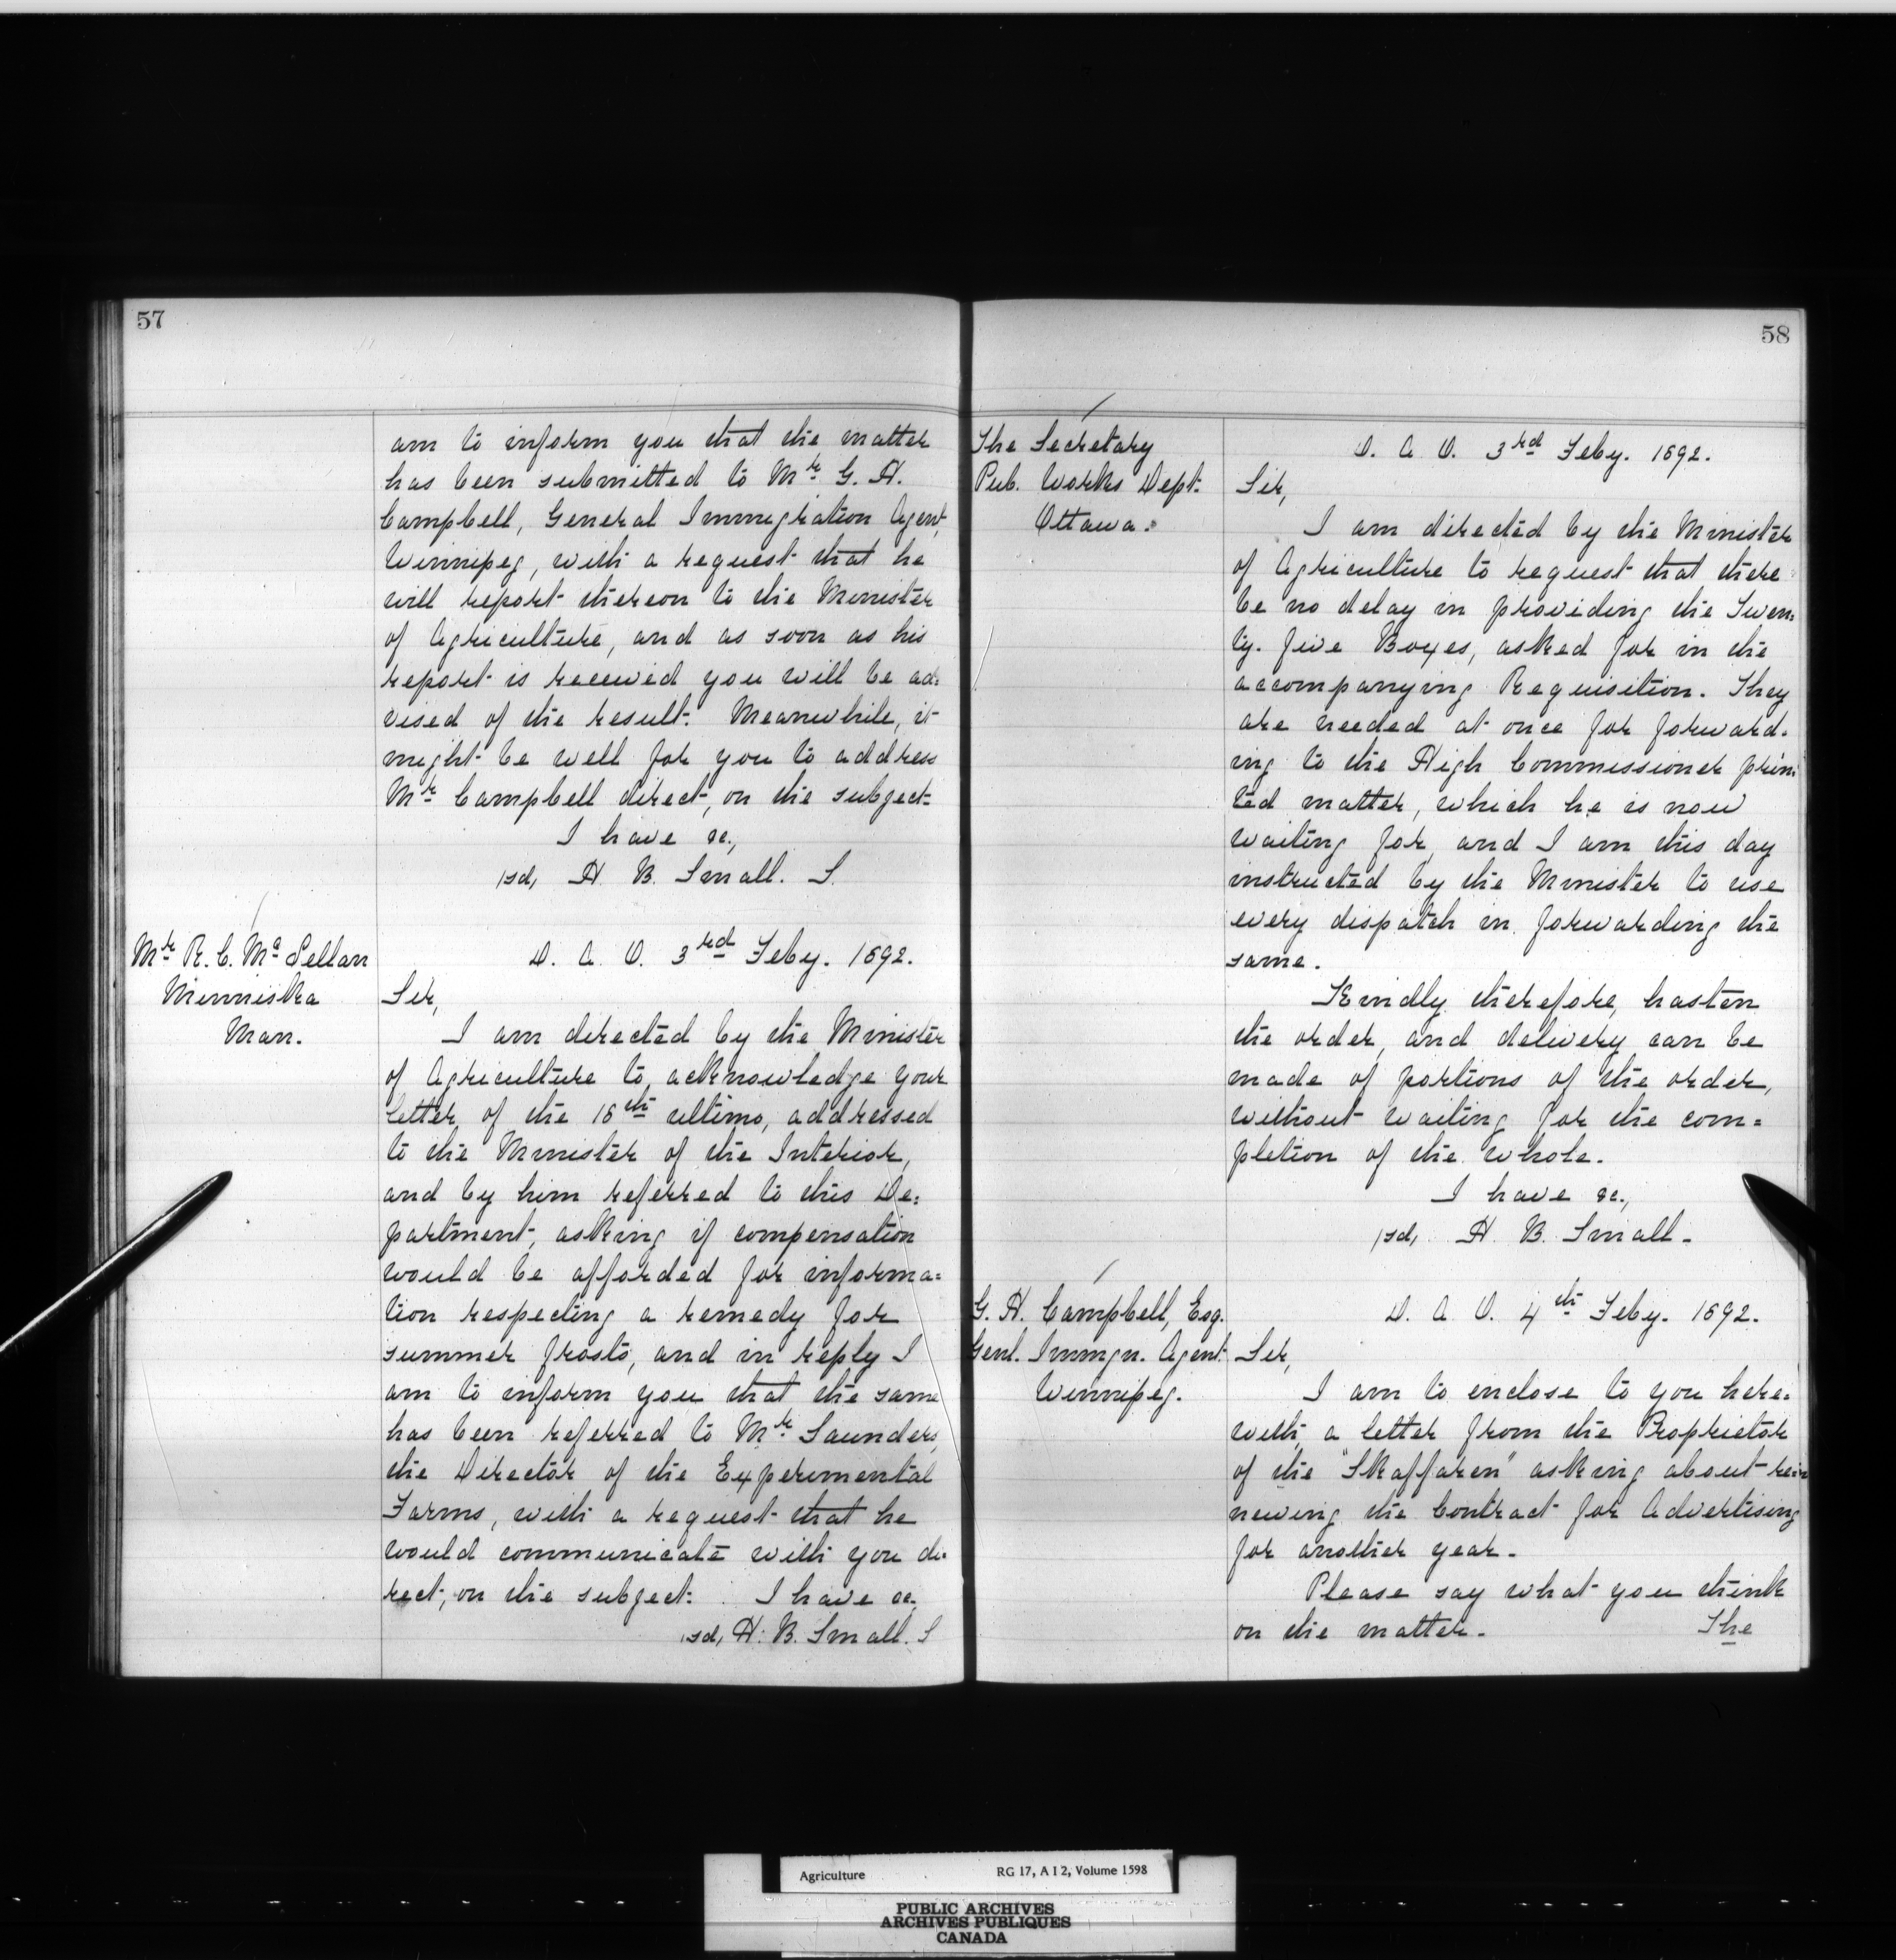 57
am to inform you that the matter
has been submitted to Mr. G. H.
Campbell, General Immigration Agent,
Winnipeg, with a request that he
will report thereon to the Minister
of Agriculture, and as soon as his
report is received you will be ad=
vised of the result. Meanwhile, it
might be well for you to address
Mr. Campbell direct, on the subject.
I have &c.,
(sd) H. B. Small. S.
Mr. R. C. McLellan
Minniska
Man.
D. A. O. 3rd Feby. 1892.
Sir,
I am directed by the Minister
of Agriculture to acknowledge your
letter of the 18th ultimo, addressed
to the Minister of the Interior,
and by him referred to this De=
partment, asking if compensation
would be afforded for informa=
tion respecting a remedy for
summer frosts, and in reply I
am to inform you that the same
has been referred to Mr. Saunders,
the Director of the Experimental
Farms, with a request that he
would communicate with you di=
rect, on the subject. I have &c,
(sd) H. B. Small. S
58
The Secretary
Pub. Works Dept.
Ottawa.
D. A. O. 3rd Feby. 1892.
Sir,
I am directed by the Minister
of Agriculture to request that there
be no delay in providing the Twen=
ty-five Boxes, asked for in the
accompanying Requisition. They
are needed at once for forward-
ing to the High Commissioner prin
ted matter, which he is now
waiting for, and I am this day
instructed by the Minister to use
every dispatch in forwarding the
same.
Kindly therefore, hasten
the order, and delivery can be
made of portions of the order,
without waiting for the com=
pletion of the whole.
I have &c.,
(sd) H. B. Small.
G. H. Campbell, Esq.
Genl. Immgn. Agent
Winnipeg.
D. A. O. 4th Feby. 1892.
Sir,
I am to enclose to you here=
with, a letter from the Proprietor
of the "Skaffaren" asking about re=
newing the Contract for Advertising
for another year.
Please say what you think
on the matter. The
Agriculture RG 17, A I 2, Volume 1598
PUBLIC ARCHIVES
ARCHIVES PUBLIQUES
CANADA